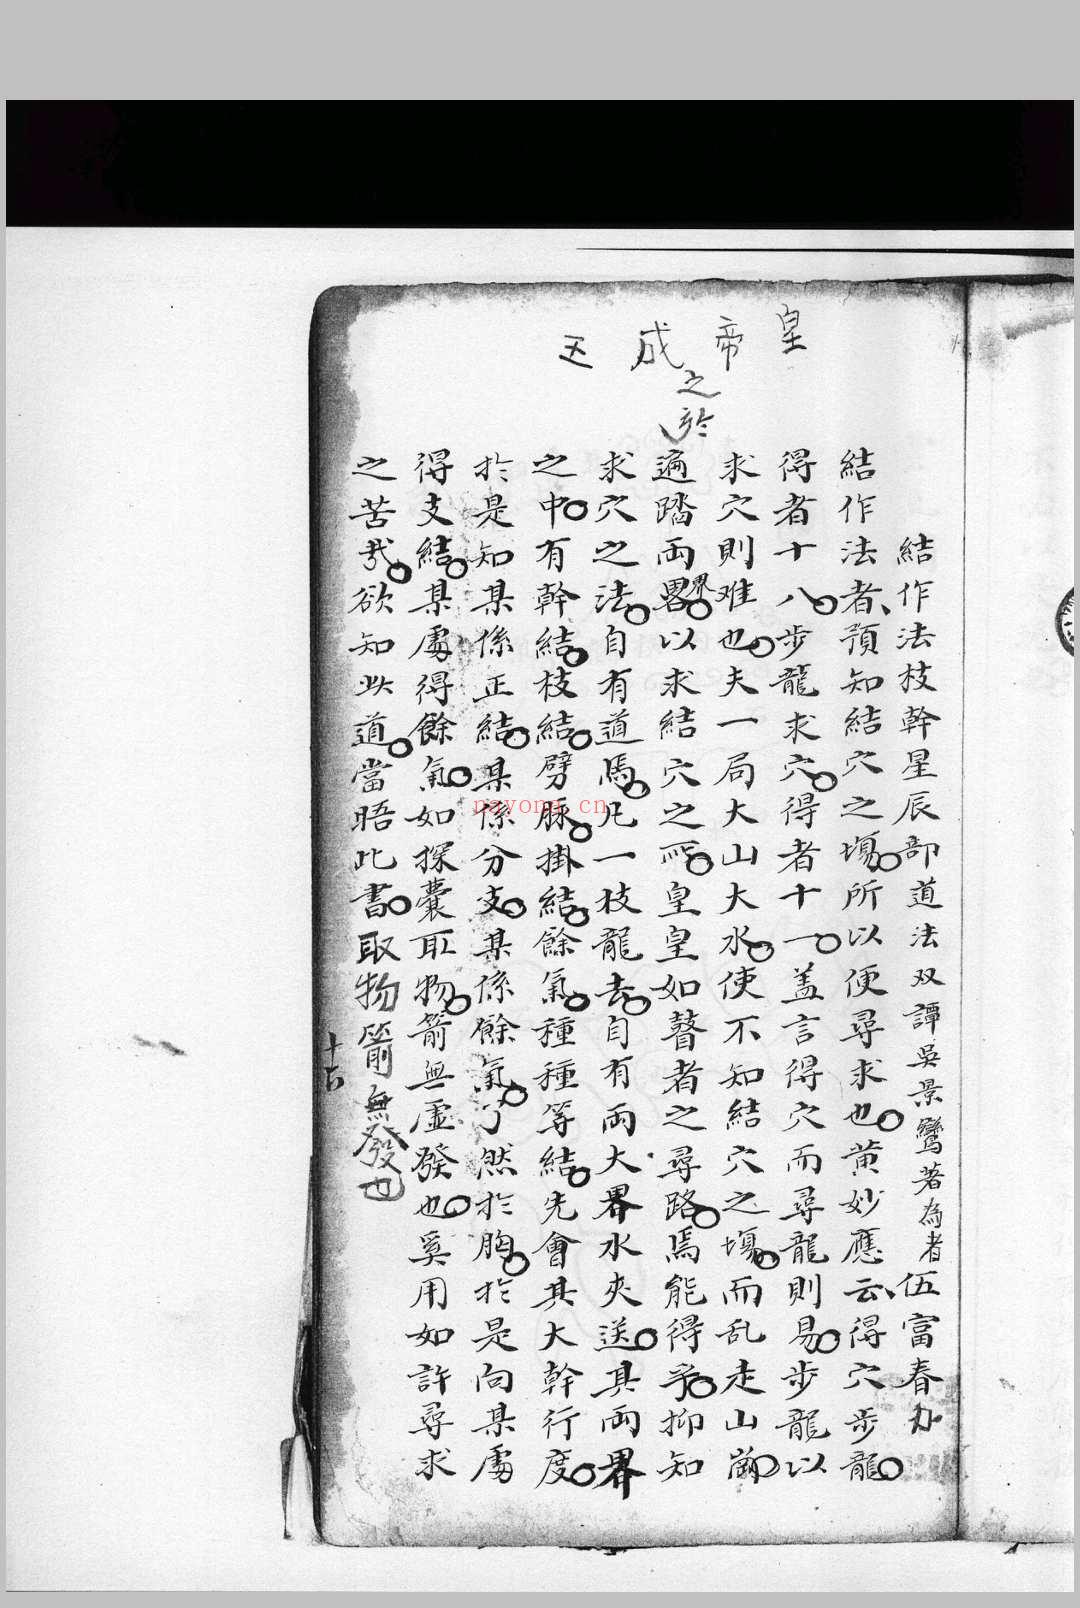 皇帝成
之
於
結作法枝幹星辰部道法双譚吳景鸞著為者伍富春
結作法者預知結穴之塲所以便尋求也黄妙應云得穴步龍
得者十八步龍求穴得者十一盖言得穴而尋龍則易步龍以
求穴則难也夫一局大山大水使不知結穴之塲而乱走山崗
遍踏両畧界以求結穴之所皇皇如瞽者之尋路焉能得乎抑知
求穴之法自有道焉凡一枝龍去自有両大界水夾送其両界
之中有幹結枝結劈脈掛結餘氣種種等結先會其大幹行度
於是知某係正結某係分支某係餘氣了然於胸於是向某處
得支結某處得餘氣如探囊取物箭無虛發也奚用如許尋求
之苦哉欲知此道當晤此書取物箭無發也
nayona.cn